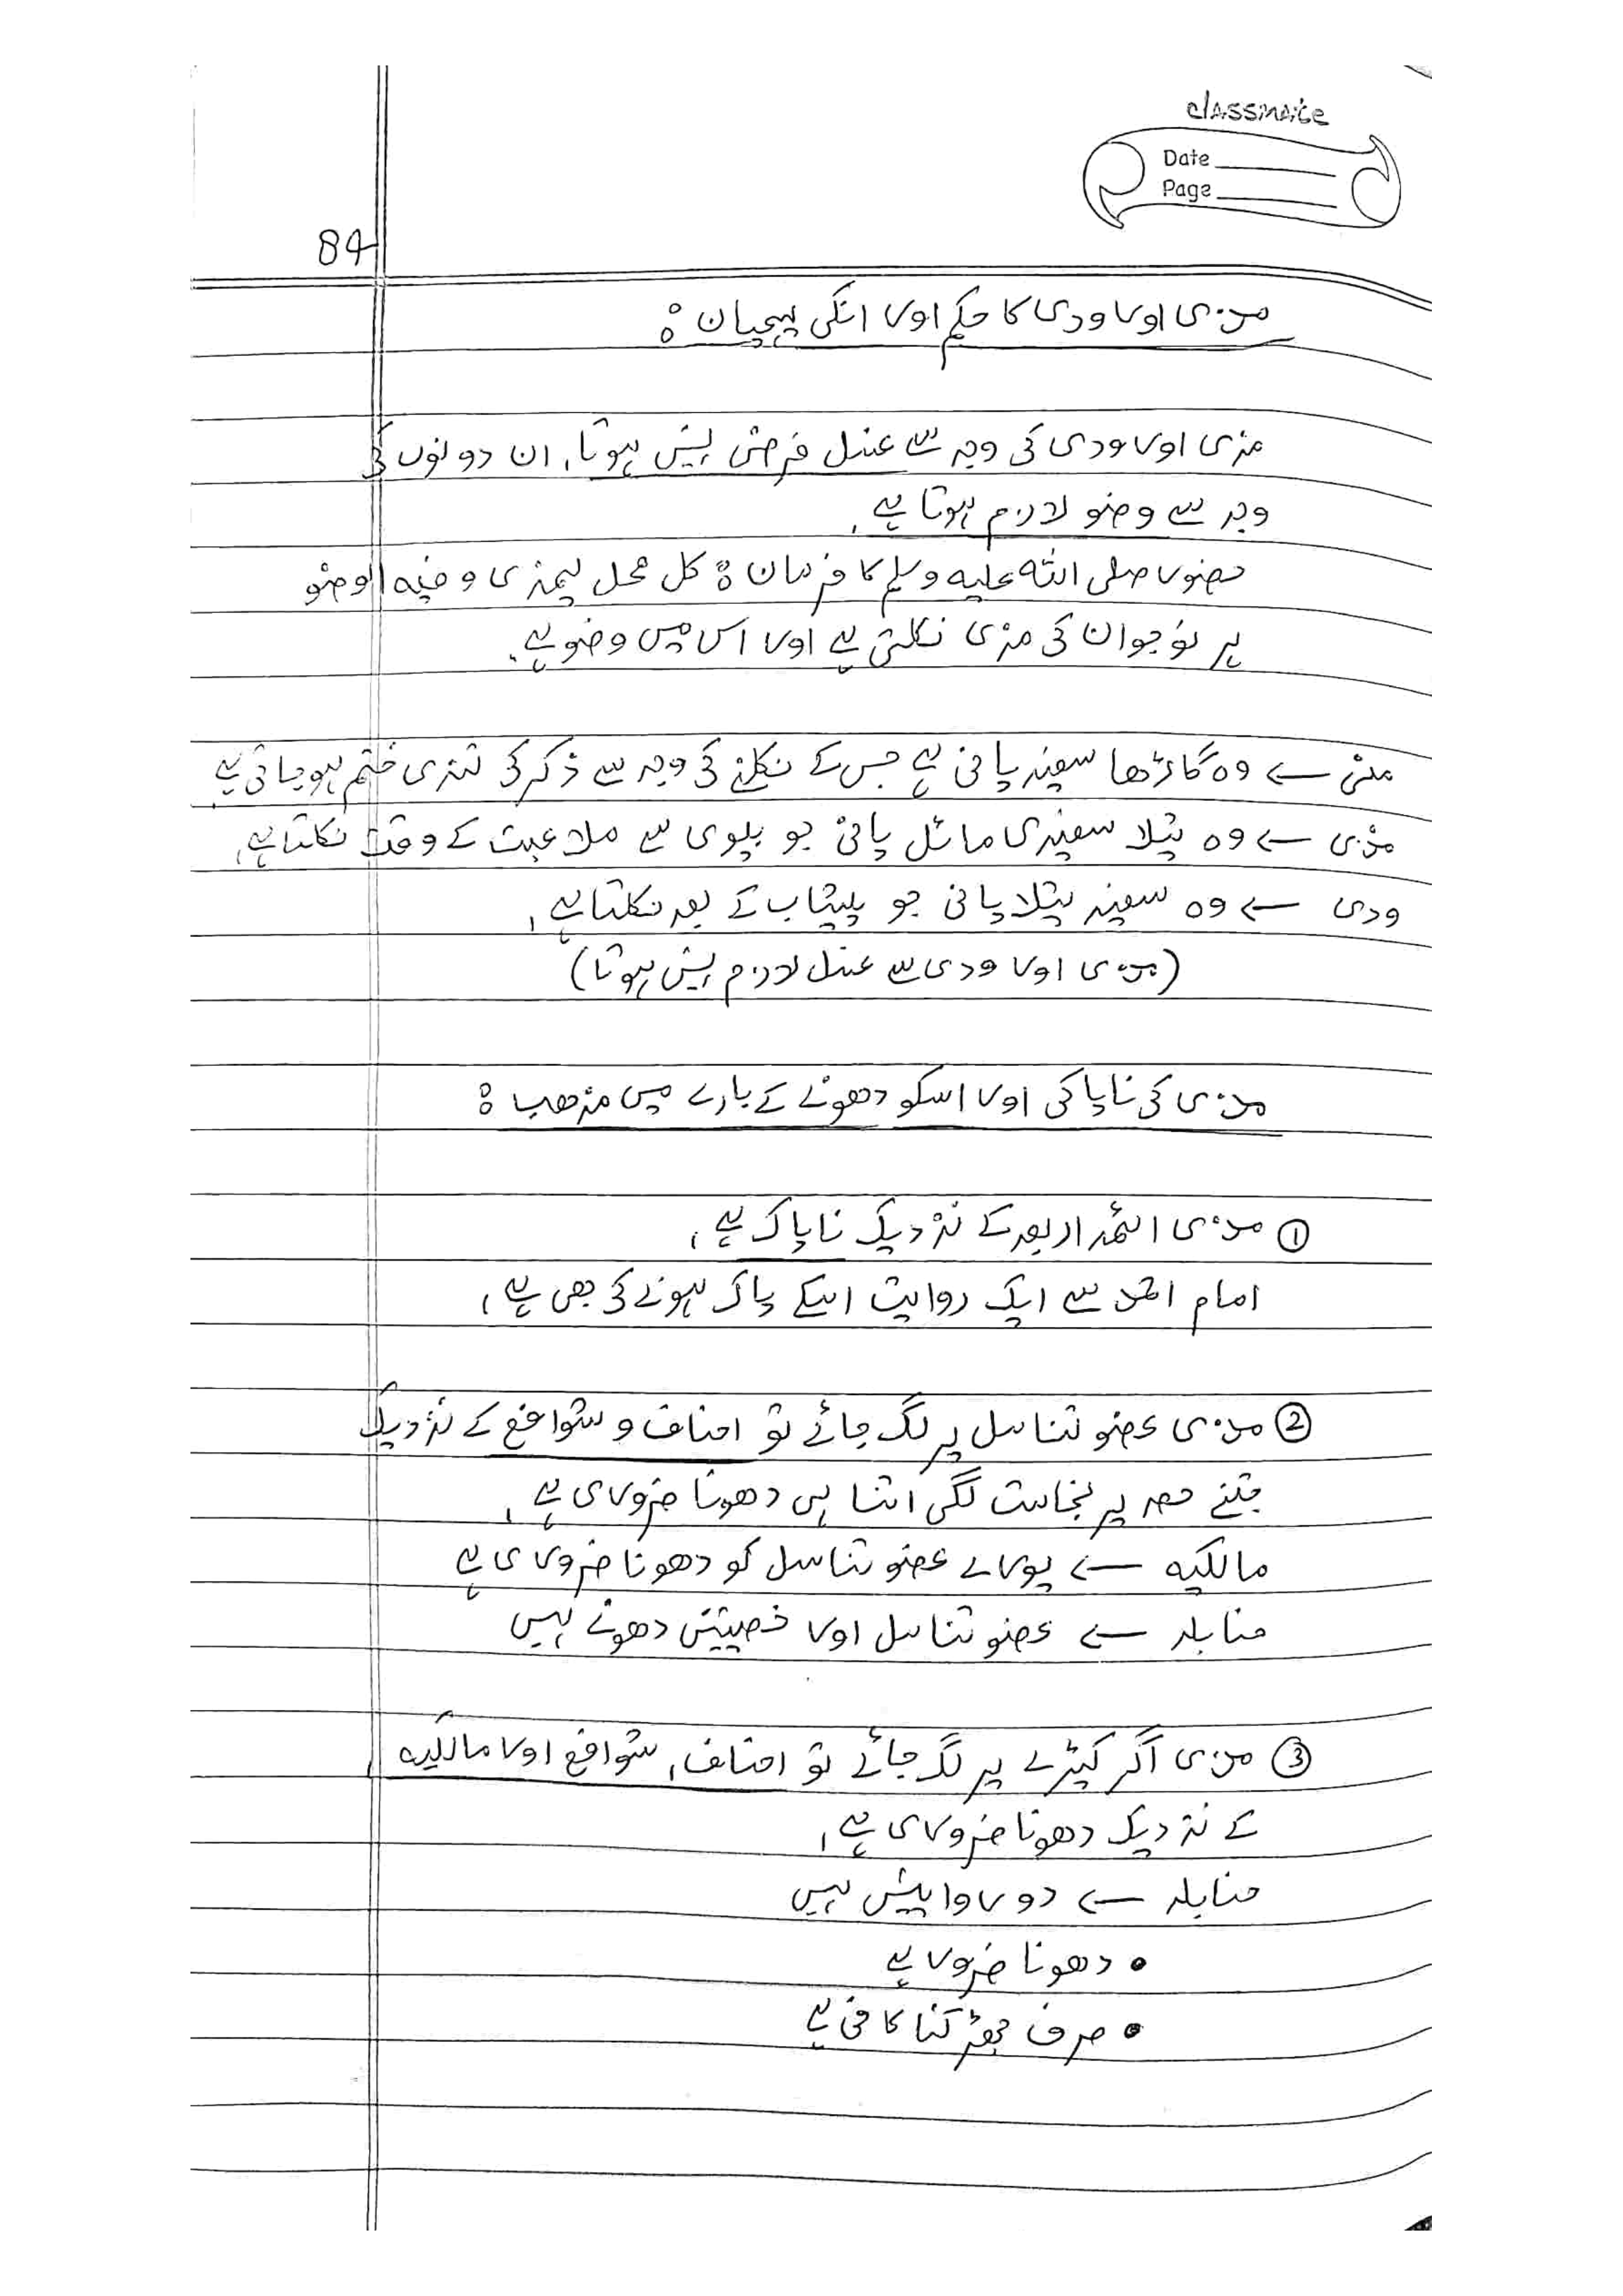 classmate
Date
Page
84
مذی اور ودی کا حکم اور انکی پہچان :
مذی اور ودی کی وجہ سے غسل فرض نہیں ہوتا، ان دونوں کی
وجہ سے وضو لازم ہوتا ہے۔
حضور صلی اللہ علیہ وسلم کا فرمان : کل فحل یمذی و فیه الوضو
ہر نوجوان کی مذی نکلتی ہے اور اس میں وضو ہے۔
منی ← وہ گاڑھا سفید پانی ہے جس کے نکلنے کی وجہ سے ذکر کی تندی ختم ہو جاتی ہے
مذی ← وہ پتلا سفیدی مائل پانی جو بیوی سے ملاعبت کے وقت نکلتا ہے،
ودی ← وہ سفید پتلا پانی جو پیشاب کے بعد نکلتا ہے،
(مذی اور ودی سے غسل لازم نہیں ہوتا)
مذی کی ناپاکی اور اسکو دھونے کے بارے میں مذھب :
① مذی ائمہ اربعہ کے نزدیک ناپاک ہے،
امام احمد سے ایک روایت اسکے پاک ہونے کی بھی ہے،
② مذی عضو تناسل پر لگ جائے تو احناف و شوافع کے نزدیک
جتنے حصہ پر نجاست لگی اتنا ہی دھونا ضروری ہے،
مالکیہ ← پورے عضو تناسل کو دھونا ضروری ہے
حنابلہ ← عضو تناسل اور خصیتین دھونے ہیں
③ مذی اگر کپڑے پر لگ جائے تو احناف، شوافع اور مالکیہ
کے نزدیک دھونا ضروری ہے،
حنابلہ ← دو روایتیں ہیں
• دھونا ضرور ہے
• صرف چھڑکنا کافی ہے